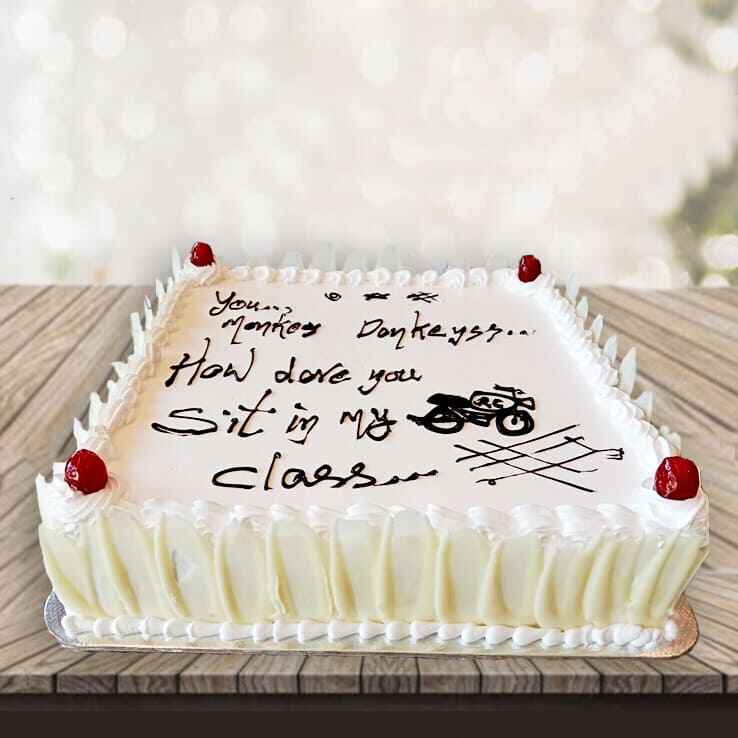 You...
Monkey Donkeyss...
How dare you
Sit in my
class...